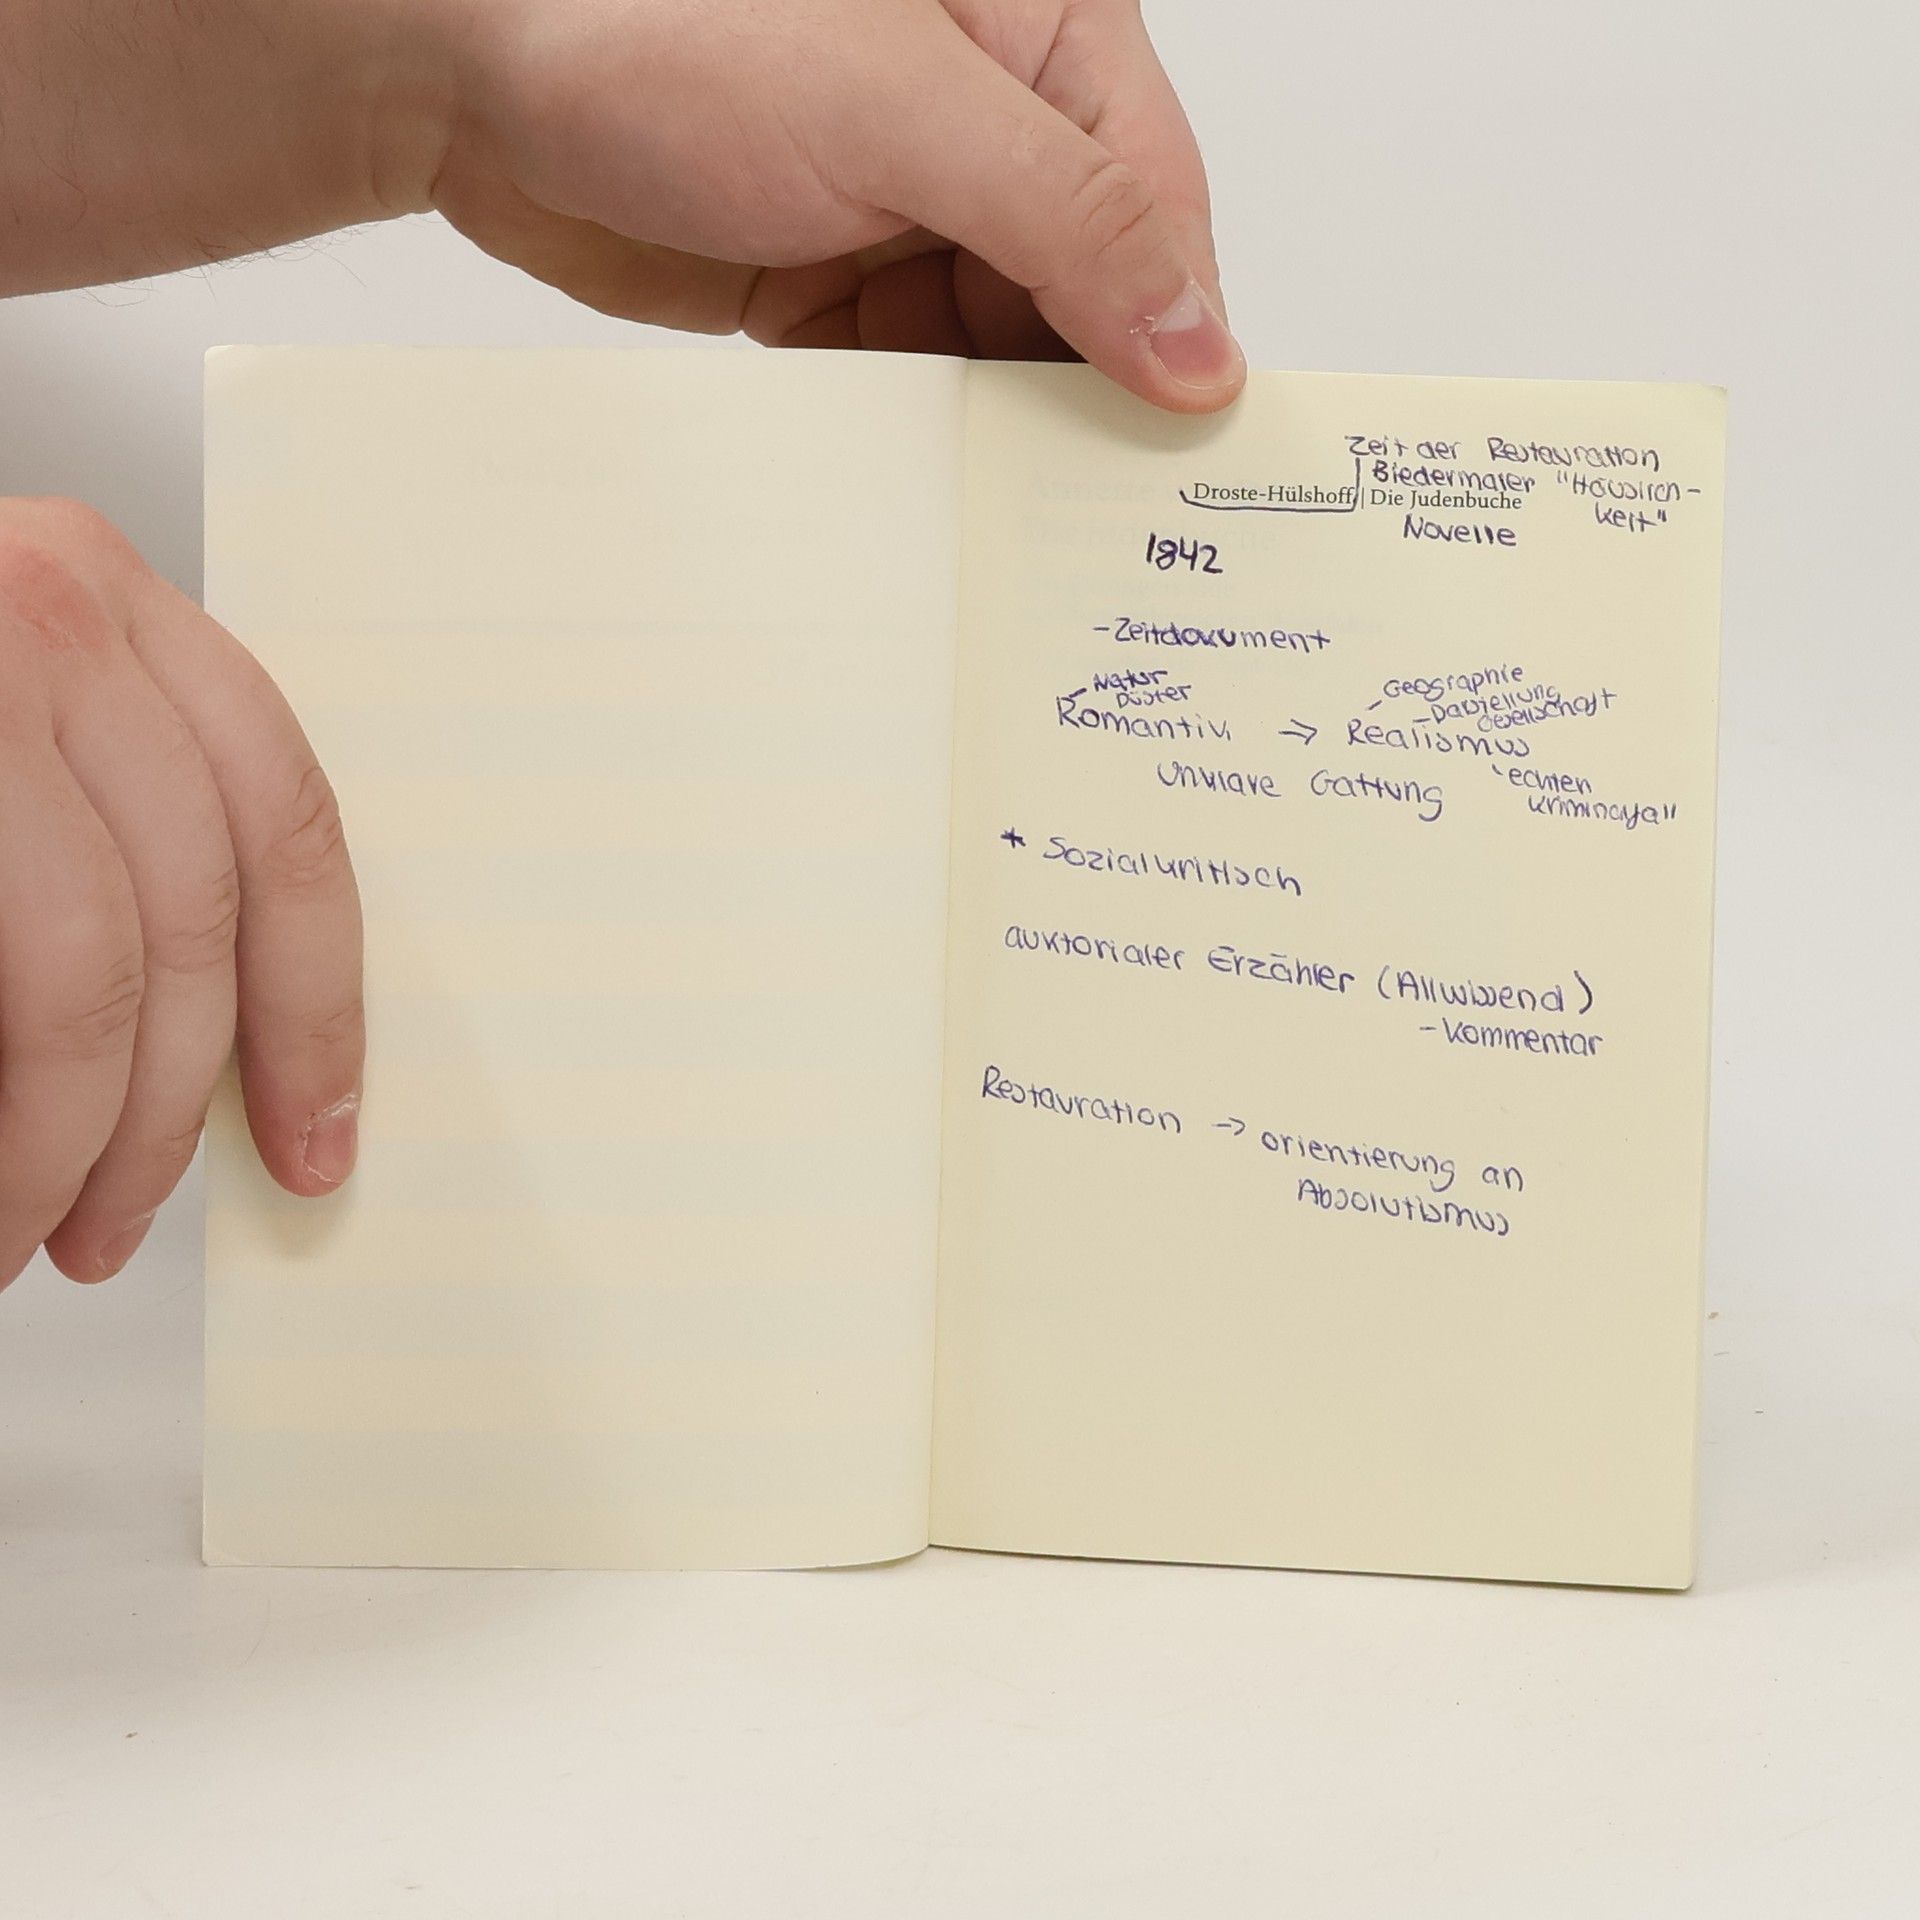 Zeit der Restauration
Biedermaier "Häuslich-
keit"
Droste-Hülshoff | Die Judenbuche
Novelle
1842
- Zeitdokument
- Natur
Düster
Romantik => Realismus
- Geographie
- Darstellung
Gesellschaft
unklare Gattung
"echten
Kriminalfall"
* Sozialkritisch
auktorialer Erzähler (Allwissend)
- Kommentar
Restauration -> orientierung an
Absolutismus